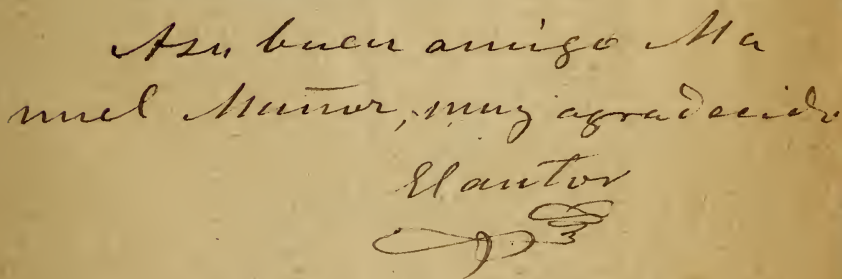 A su buen amigo Ma
nuel Muñoz, muy agradecido
El autor